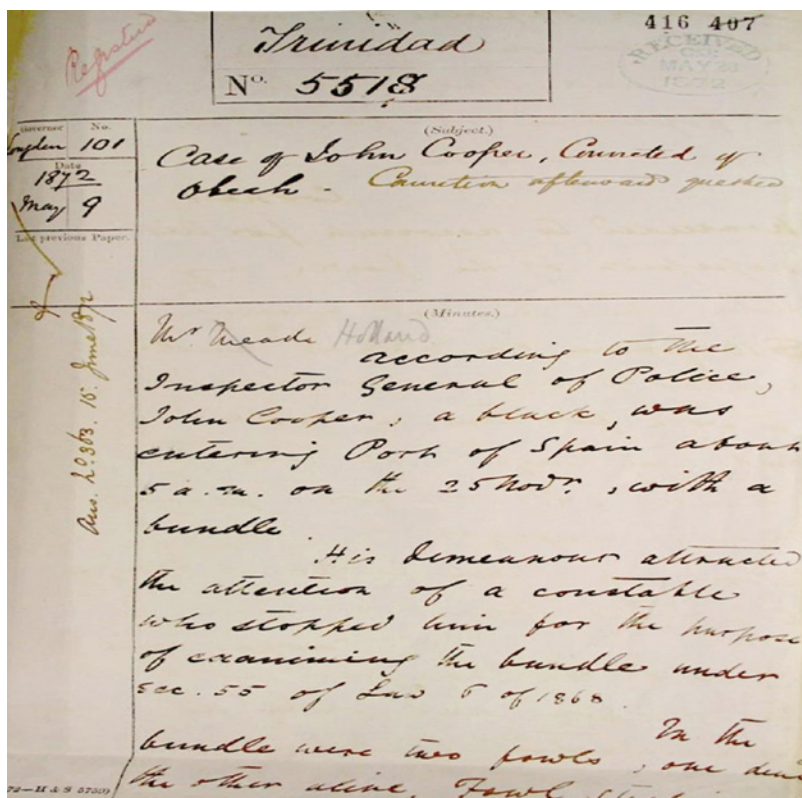 416 407
Registered
Trinidad
No. 5518
RECEIVED
MAY 28
1872
Governor
No.
Longden 101
Date
1872
May 9
Last previous Paper.
(Subject.)
Case of John Cooper, Convicted of
Obeah - Conviction afterward quashed
Ans. No 363. 15 June 1872
(Minutes.)
Mr Meade Holland
according to the
Inspector General of Police,
John Cooper, a black, was
entering Port of Spain about
5 a.m. on the 25 Novr, with a
bundle.
His demeanour attracted
the attention of a constable
who stopped him for the purpose
of examining the bundle under
Sec. 55 of Law 6 of 1868.
In the
bundle were two fowls, one dead
the other alive, Fowl
72—H & S 5750)